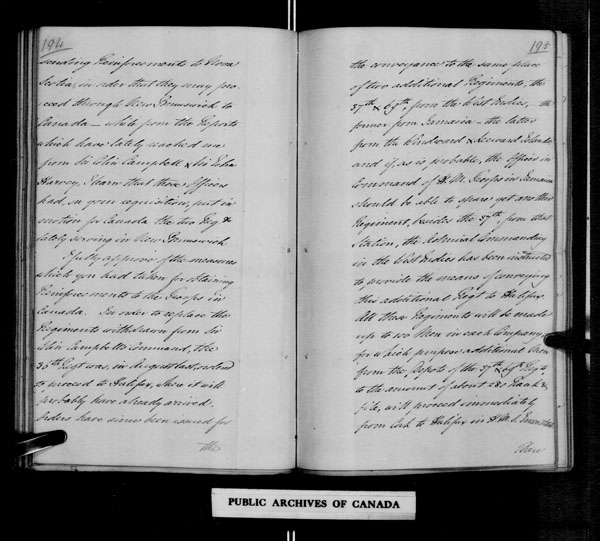 194
sending Reinforcements to Nova
Scotia, in order that they may pro-
ceed through New Brunswick to
Canada — while from the Reports
which have lately reached me
from Sir Colin Campbell & Sir John
Harvey, I learn that those Officers
had, on your requisition, put in
motion for Canada the two Regts
lately serving in New Brunswick
I fully approve of the measures
which you had taken for obtaining
Reinforcements to the Troops in
Canada. In order to replace the
Regiments withdrawn from Sir
Colin Campbell's command, the
Regt was, in August last, ordered
to proceed to Halifax, where it will
probably have already arrived.
Orders have since been issued for
the
195
the conveyance to the same place
of two additional Regiments, the
37th & 69th from the West Indies, — the
former from Jamaica — the latter
from the Windward & Leeward Islands
and if, as is probable, the Officer in
Command of H. M. Troops in Jamaica
should be able to spare yet another
Regiment, besides the 37th, from that
Station, the Admiral Commanding
in the West Indies has been instructed
to provide the means of conveying
this additional Regt to Halifax.
All these Regiments will be made
up to 100 Men in each Company,
for which purpose additional Men
from the Depots of the 37th & 69th Regts,
to the amount of about Rank &
file, will proceed immediately
from Cork to Halifax in H. M. S.
These
PUBLIC ARCHIVES OF CANADA